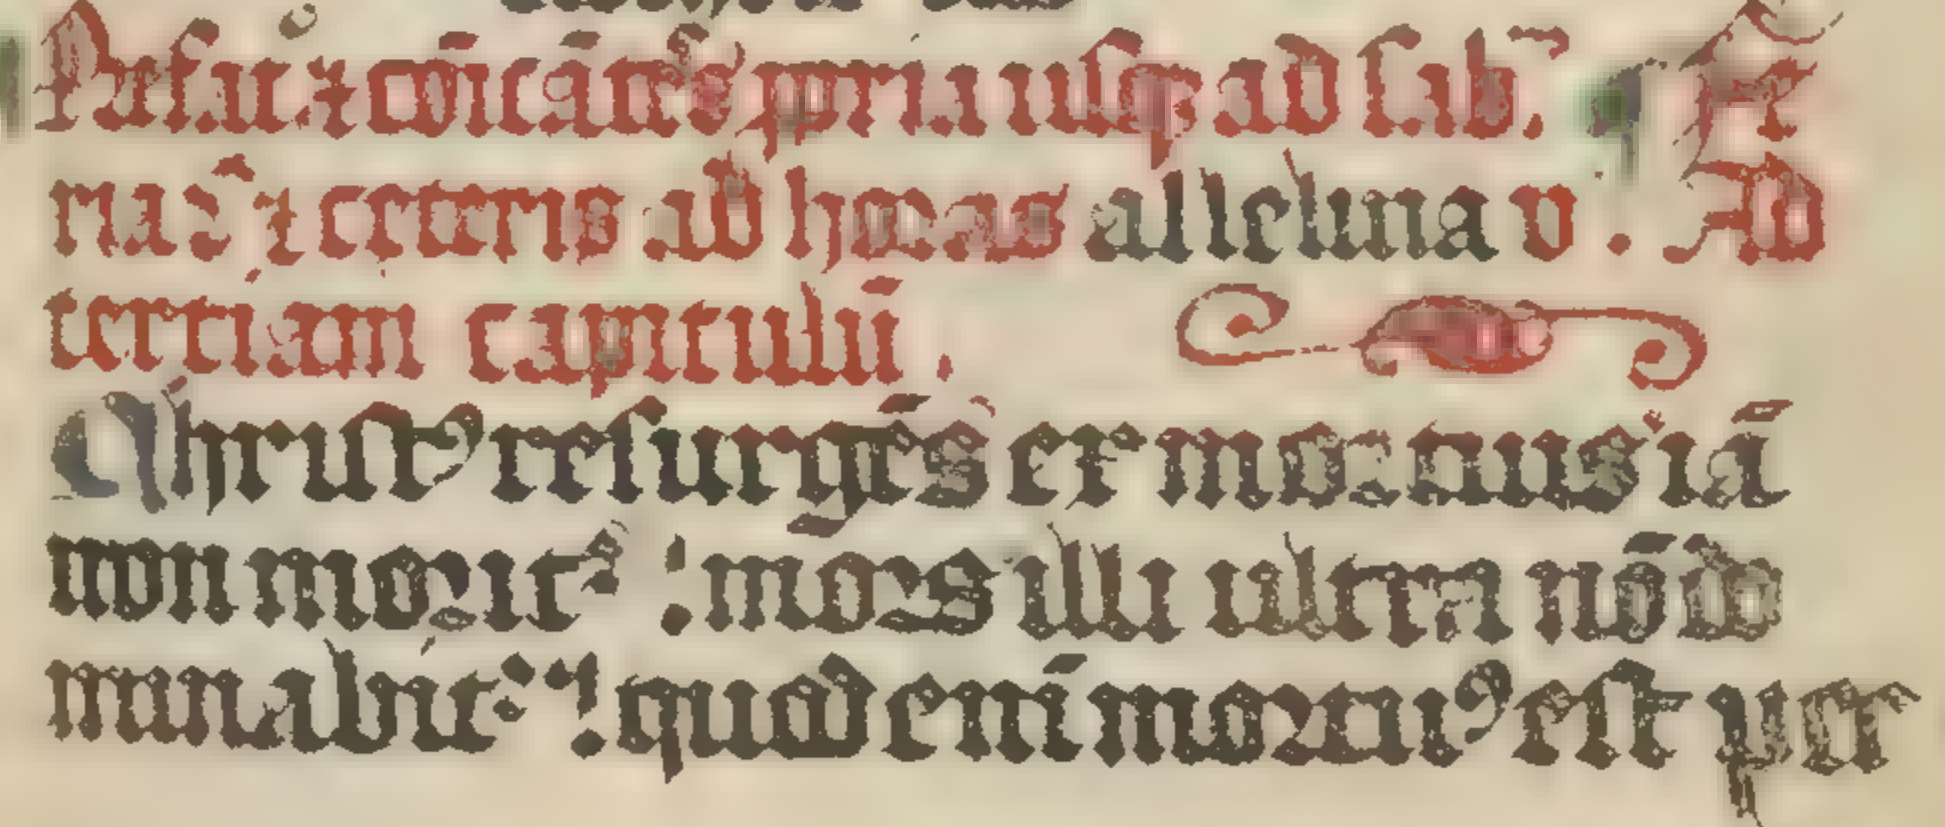 ad sab̄. ¶ Fe
rias ⁊ ceteris ad horas alleluna v. Ad
tertiam capitulū.
Christꝰ resurgēs ex mortuis iā
non morit᷑ : mors illi ultra nō do
minabit᷑ : quod enī mortuꝰ est pec